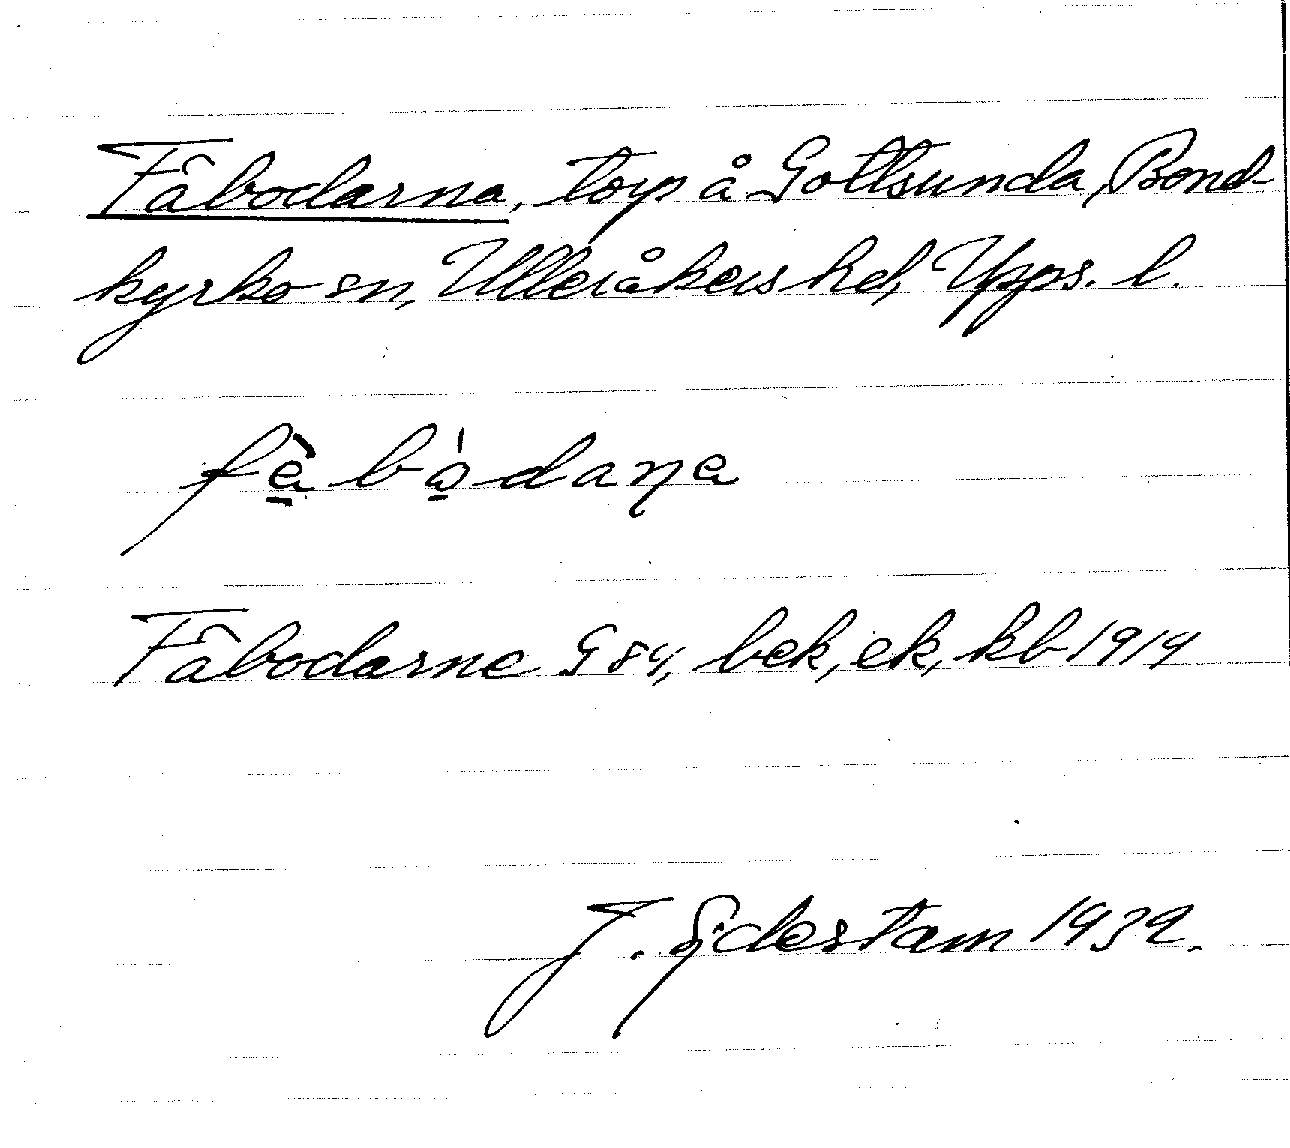 Fäbodarna, torp å Gottsunda, Bond-
kyrko sn, Ulleråkers hd, Upps. l.
fè̱ bó̱daṇa
Fäbodarne G 84, bek, ek, kb 1919
J. Sjdestam 1932.